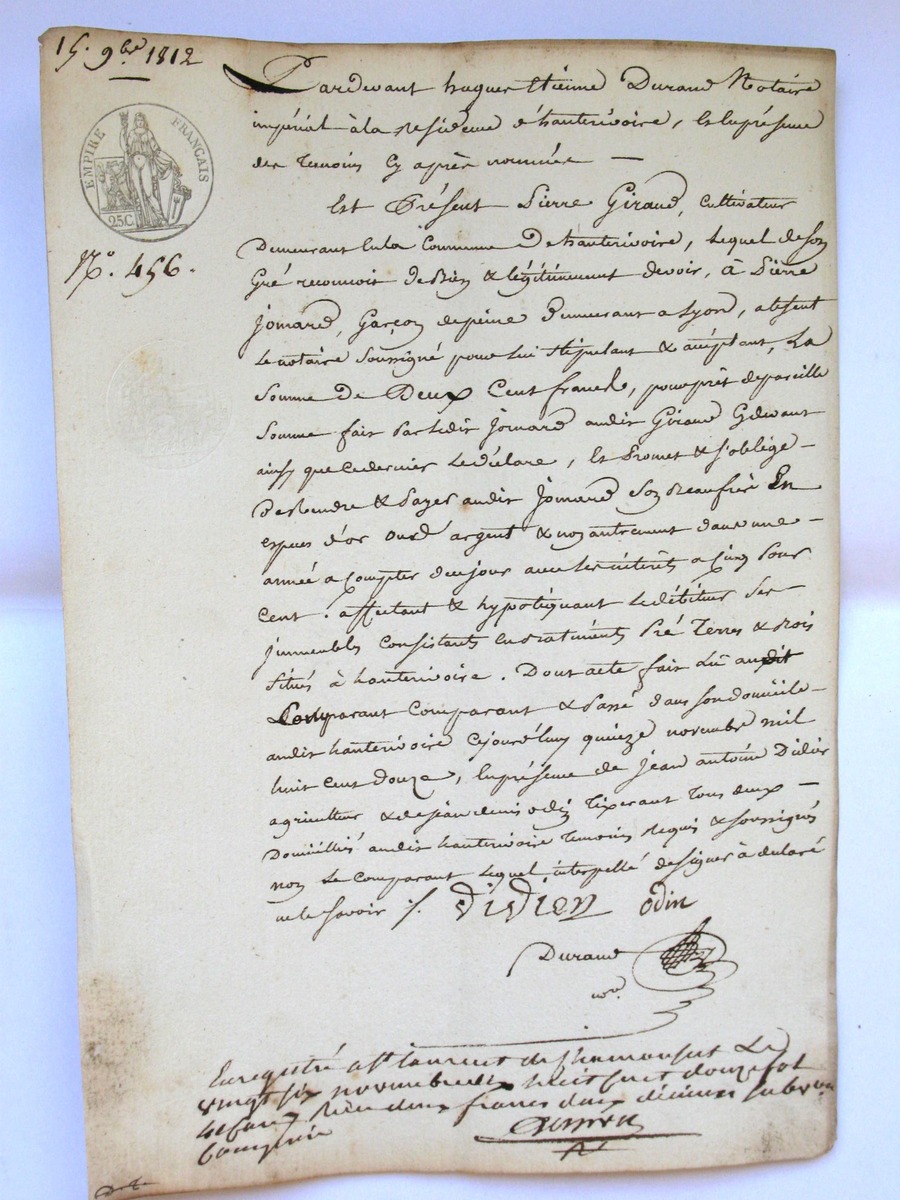 15. 9bre 1812
EMPIRE FRANÇAIS
25C
N°. 456.
Pardevant hugues Etienne Durand Notaire
impérial à la residence d'hauterivoire, Et En présence
des temoins Cy après nommés —
Est Présent Pierre Giraud, Cultivateur
Demeurant En la Commune D'hauterivoire, Lequel de son
Gré reconnoit de Bien & légitimement devoir, à Pierre
Jomard, Garçon de peine Demeurant a Lyon, absent
Le notaire soussigné pour lui stipulant & acceptant, La
Somme De Deux Cent francs, pour prêt de pareille
Somme fait Par Ledit Jomard audit Giraud Cydevant
ainsy que ce dernier Le déclare, Et Promet & s'oblige —
De Rendre & Payer audit Jomard Son Beaufrère En
espèces d'or ou d'argent & non autrement dans une —
année a Compter de ce jour avec les intérêts a Cinq Pour
Cent. affectant & hypotéquant Le débiteur Ses
immeubles Consistants en Batiments Pré Terres & Bois
Situés à hauterivoire. Dont acte fait Lû audit
Comparant & Passé dans son domicile —
audit hauterivoire Cejourd'huy quinze novembre mil
huit cent douze, En présence de Jean antoine Didier
agriculteur & de Jean denis odin Tixerant Tous deux —
Domiciliés audit hauterivoire temoins Requis & soussignés
non Le comparant Lequel interpellé de signer à déclaré
ne le savoir ./. Didier odin
Durand
nre
Enregistré a St Laurent de Chamousset Le
vingt six novembre mil huit cent douze fol
Reçu deux francs deux décimes subvon
comprise